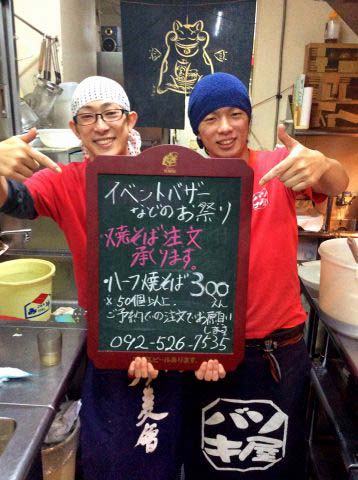 イベントバザー
などのお祭り
焼そば注文
承ります。
・ハーフ焼そば300えん
※50個以上.
ご予約での注文でお願い
します
092-526-7535
ビールあります。
バソ
キ屋